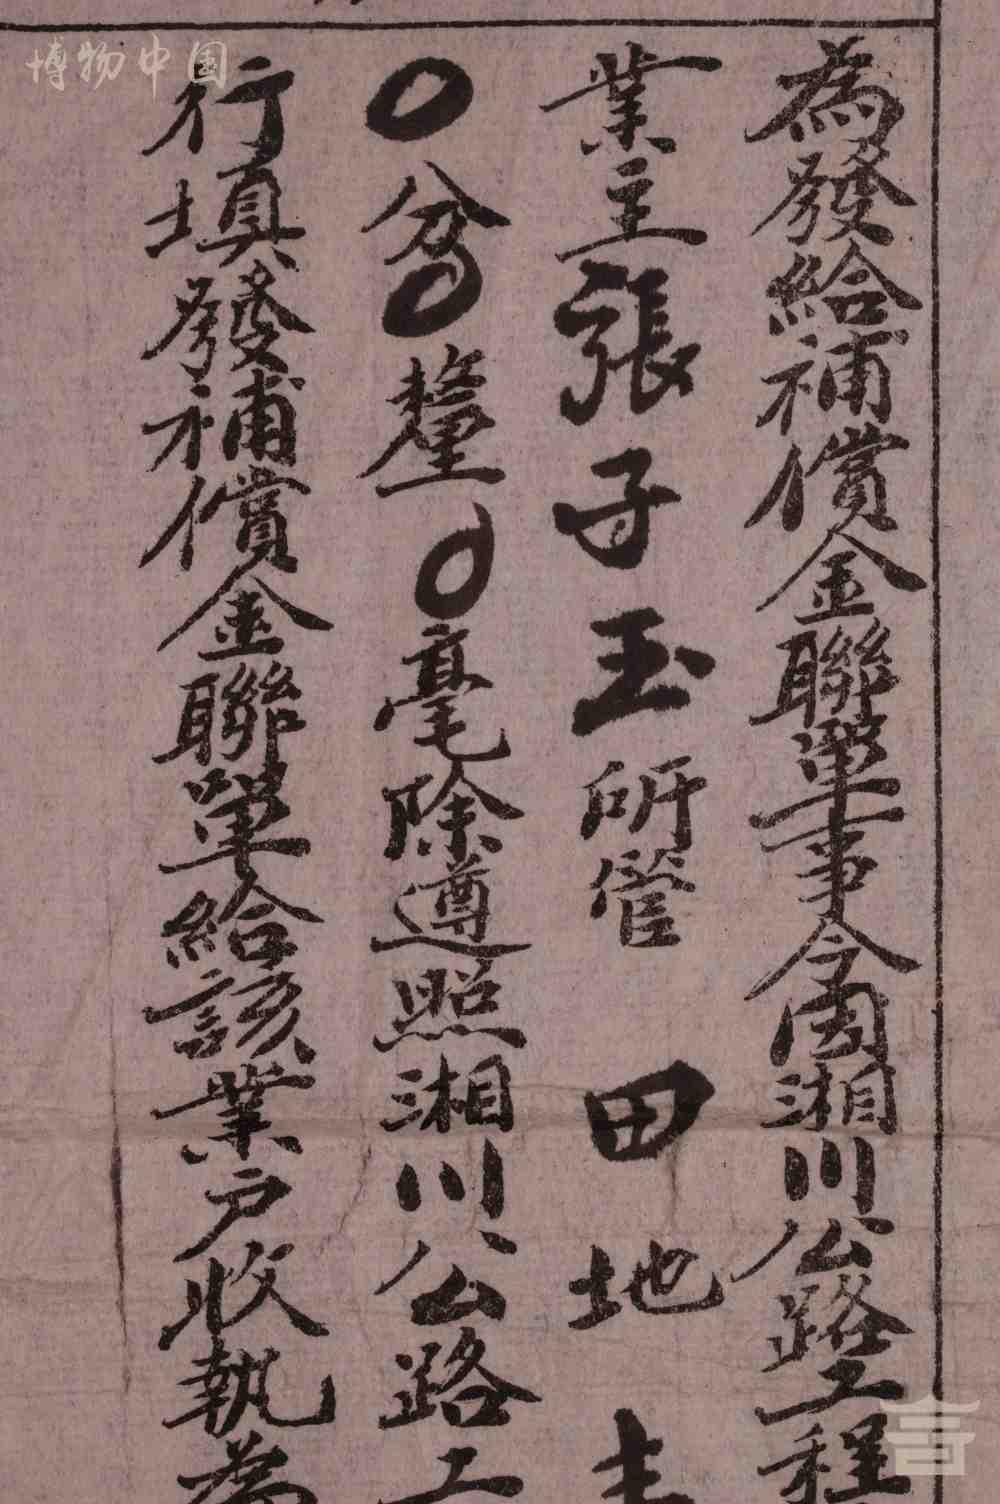 為發給補償金聯單事今因湘川公路工程
業主張子玉所管田地
〇分〇釐〇毫除遵照湘川公路工
行填發補償金聯單給該業戶收執為
博物中国